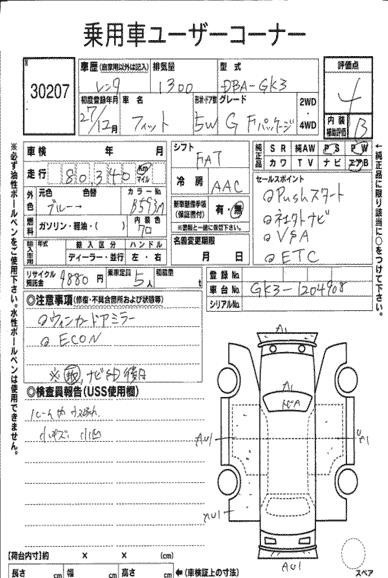 乗用車ユーザーコーナー
30207
車歴(自家用以外は記入) 排気量 型式 評価点
レンタ 1300 DBA-GK3 4
初度登録年月 車名 形状・ドア数 グレード 2WD・4WD 内装補助評価 B
27/12月 フィット 5W G Fパッケージ
車検 年 月 シフト 純正品 SR 純AW PS PW
FAT カワ TV ナビ エアB
走行 80340 km マイル 冷房 セールスポイント
AAC
外色 元色 色替 カラーNo
ブルー→ B593M
新車整備手帳(保証書付) 有・無
燃料 ガソリン・軽油・( ) 内装色
※書類と一緒に提出下さい。
輸入車用 年式 輸入区分 ハンドル 名義変更期限
ディーラー・並行 左・右 月 日
Pushスタート
社外ナビ
VSA
ETC
リサイクル預託金 9880円 乗車定員 5人 積載量 t
登録No
車台No GK3-1204908
シリアルNo
◎注意事項(修復・不具合箇所および状態等)
ウィンカードアミラー
ECON
◎検査員報告(USS使用欄)
小キズ 小凹
A1
A1
AU1
AU1
AU1
スペア
【荷台内寸】 約 × × (cm)
長さ cm 幅 cm 高さ cm ←(車検証上の寸法)
※必ず油性ボールペンをご使用下さい。水性ボールペンは使用できません。
←純正品に限り該当に○をつけて下さい。